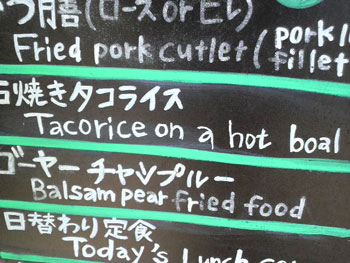 つ膳(ロースorヒレ)
Fried pork cutlet (pork
fillet
石焼きタコライス
Tacorice on a hot boal
ゴーヤーチャンプルー
Balsam pear fried food
日替わり定食
Today's Lunch